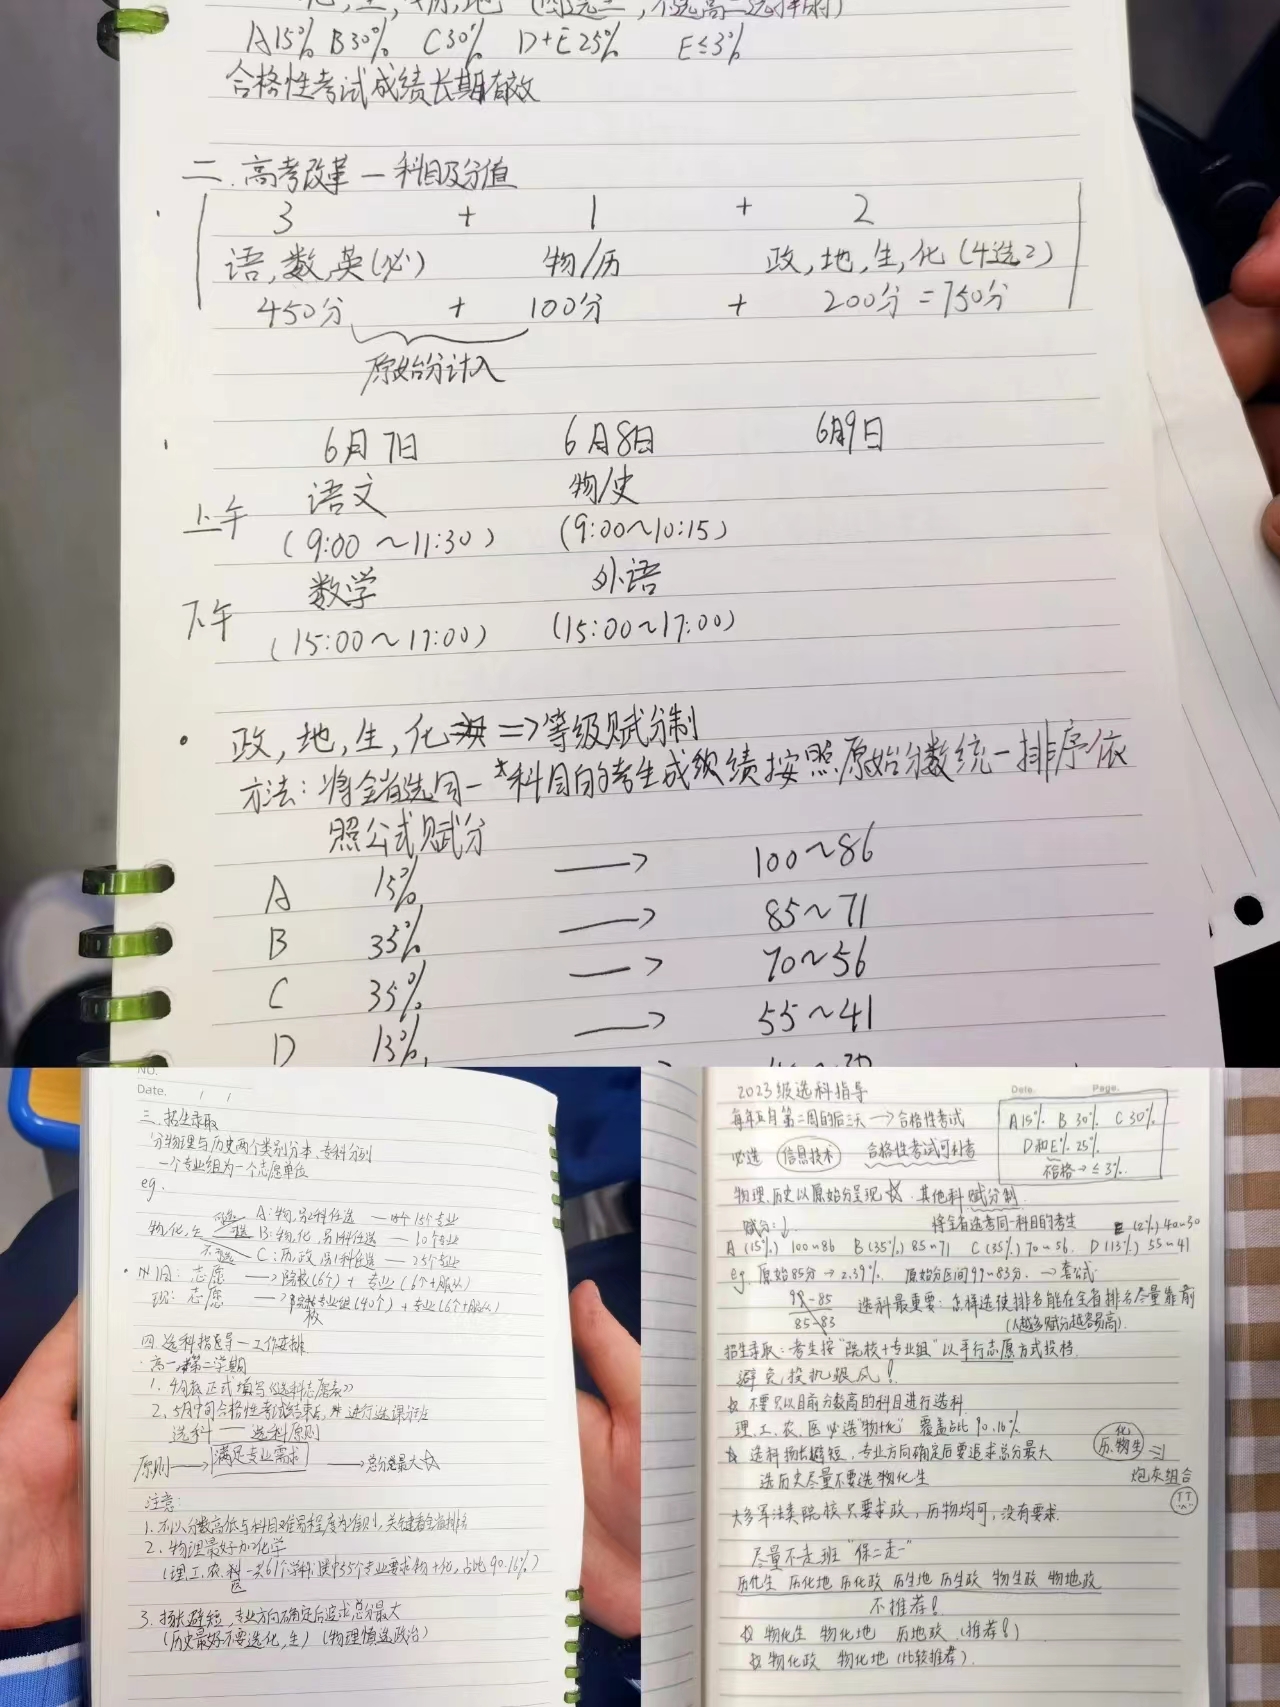 化,生,政,历,地
A15% B30% C30% D+E 25% E≤3%
合格性考试成绩长期有效
二.高考改革—科目及分值
3 + 1 + 2
语,数,英(必) 物/历 政,地,生,化(4选2)
450分 + 100分 + 200分=750分
原始分计入
6月7日 6月8日 6月9日
上午 语文 物/史
(9:00~11:30) (9:00~10:15)
下午 数学 外语
(15:00~17:00) (15:00~17:00)
政,地,生,化 => 等级赋分制
方法:将全省选同一科目的考生成绩按照原始分数统一排序依
照公式赋分
A 15% → 100~86
B 35% → 85~71
C 35% → 70~56
D 13% → 55~41
NO.
Date. / /
三.招生录取
分物理与历史两个类别分本、专科分列
一个专业组为一个志愿单位
eg.
物,化,生 可选 A:物,另2科任选 —15个专业
可选 B:物,化,另1科任选 —10个专业
不可选 C:历,政,另1科任选 —25个专业
旧:志愿 → 院校(6个)+专业(6个+服从)
现:志愿 → 院校专业组(40个)+专业(6个+服从)
四.选科指导—工作安排
高一第二学期
1. 4月底正式填写《选科志愿表》
2. 5月中旬合格性考试结束后,进行选课分班
选科——选科原则
原则 → 满足专业需求 → 总分最大☆
注意:
1.不以分数高低与科目难易程度为准则,关键看全省排名
2.物理最好加化学
(理、工、农、医一共61个学科,其中55个专业要求物+化,占比90.16%)
3.扬长避短,专业方向确定后追求总分最大
(历史最好不要选化,生)(物理慎选政治)
2023级选科指导
Date. Page.
每年五月第三周的后三天 → 合格性考试
A15% B30% C30%
D和E% 25%
不合格→≤3%
必选 信息技术 合格性考试可补考
物理,历史以原始分呈现☆.其他科赋分制.
赋分:↓ 将全省选考同一科目的考生 E(2%)40~30
A(15%) 100~86 B(35%) 85~71 C(35%) 70~56. D(13%) 55~41
eg.原始85分→2.39%. 原始分区间99~83分.→套公式.
99-85
85-83
选科最重要:怎样选使排名能在全省排名尽量靠前
(人越多赋分越容易高).
招生录取:考生按"院校+专业组"以平行志愿方式投档.
避免投机跟风!
☆不要只以目前分数高的科目进行选科.
理、工、农、医必选"物+化" 覆盖占比90.16%
☆选科扬长避短,专业方向确定后要追求总分最大
选历史尽量不要选物化生
化
历.物生
炮灰组合
TT
大多军法类院校只要求政,历物均可,没有要求.
尽量不走班"保二走一"
历化生 历化地 历化政 历生地 历生政 物生政 物地政
不推荐!
☆物化生 物化地 历地政 (推荐!)
☆物化政 物化地(比较推荐).